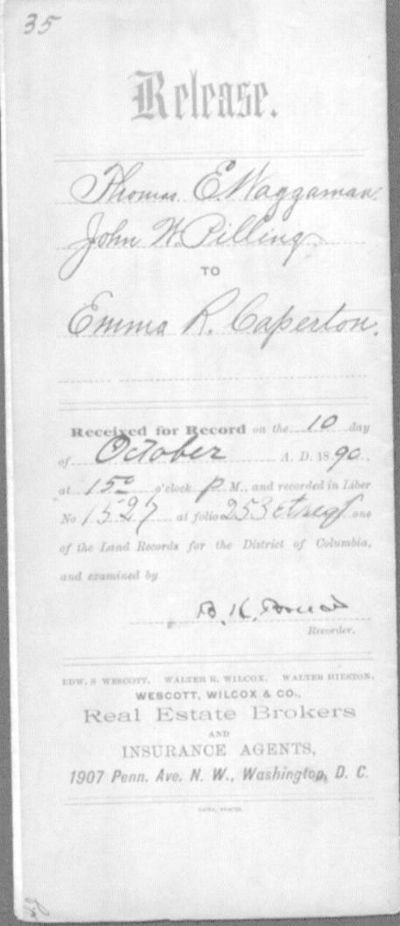 35
Release.
Thomas E. Waggaman.
John W. Pilling
TO
Emma R. Caperton.
Received for Record on the 10 day
of October A. D. 1890,
at 15⁰ o'clock P M., and recorded in Liber
No 1527 at folio 253 et seq one
of the Land Records for the District of Columbia,
and examined by
B. K. Bruce
Recorder.
EDW. S WESCOTT. WALTER R. WILCOX. WALTER HIESTON.
WESCOTT, WILCOX & CO.,
Real Estate Brokers
AND
INSURANCE AGENTS,
1907 Penn. Ave. N. W., Washington, D. C.